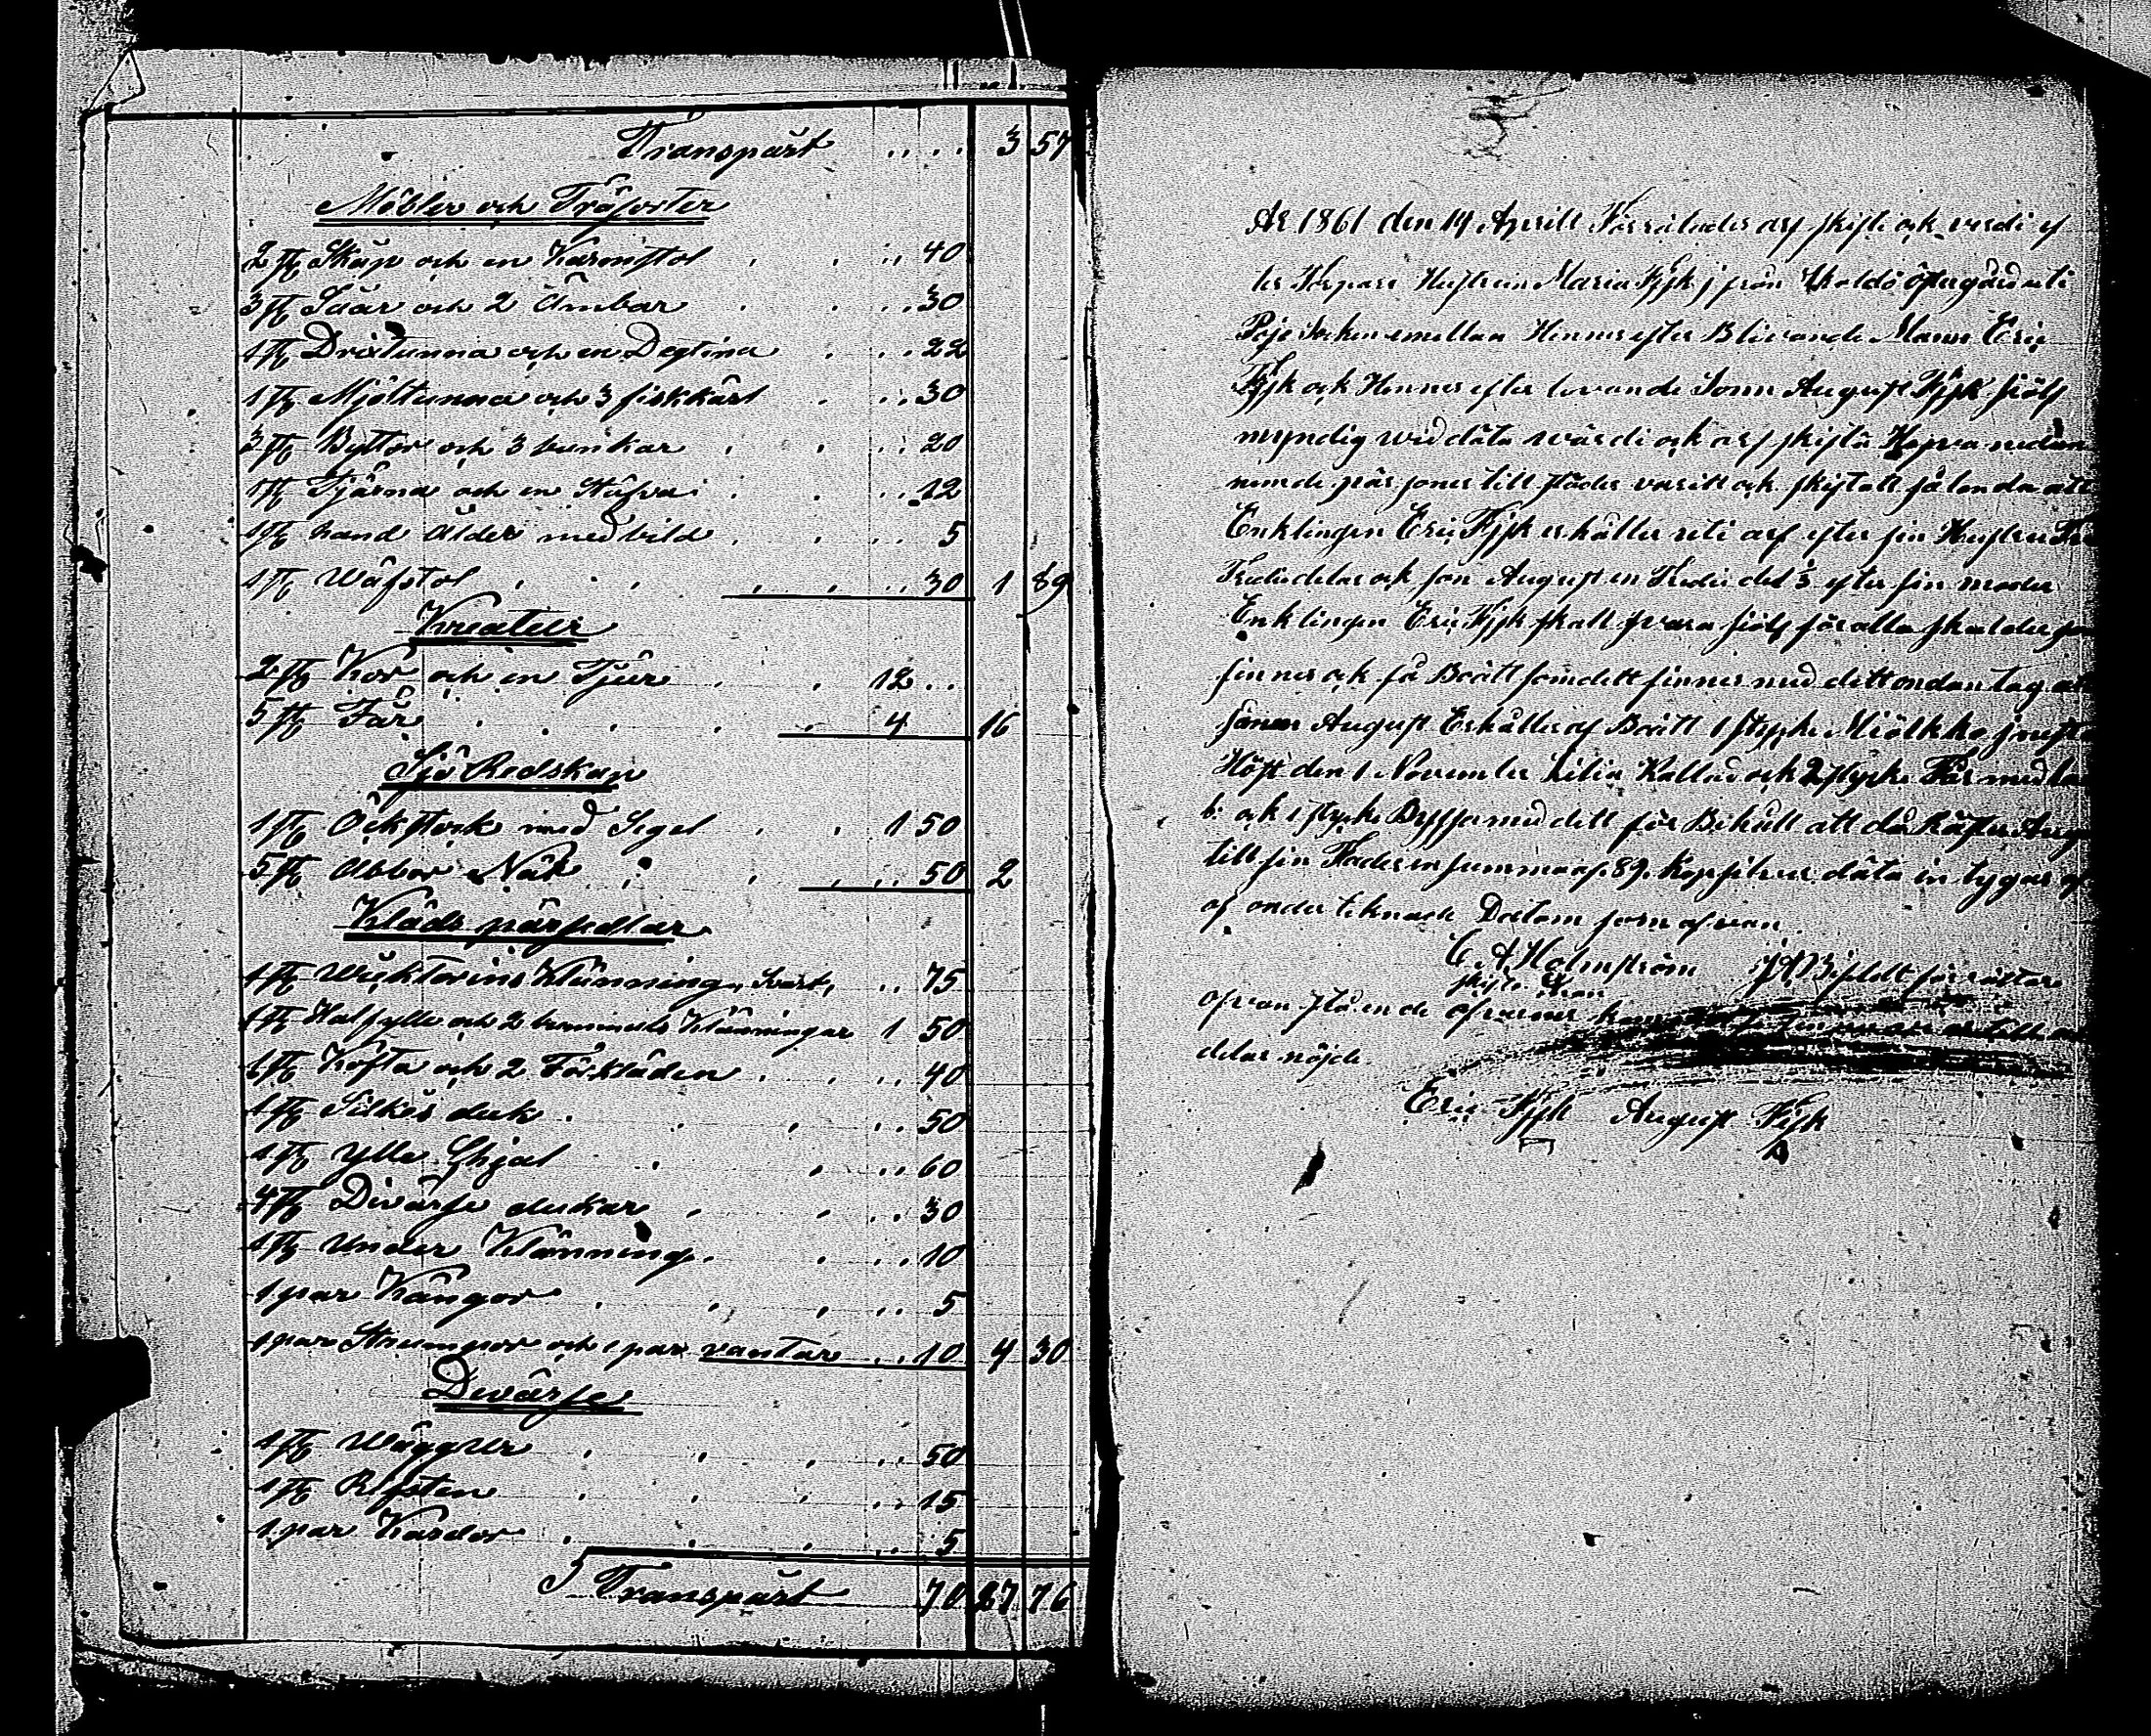 Transpårt .... 3 57
Möbler och Träsorter
2 st Skåp och en Karmstol . . .. 40
3 st Såar och 2 Ämbar . . .. 30
1 st Drixtunna och en Degtina . .. 22
1 st Mjöltunna och 3 fiskkärl . .. 30
3 st Byttor och 3 bunkar . . .. 20
1 st Tjärna och en . . .. 12
1 st hand med bild . . .. 5
1 st Wäfstol . . . . . .. 30 1 89
Kreatur
2 st Kor och en Tjur . . 12 ..
5 st Får . . . . . 4 16
Sjö Redskap
1 st Öckstock med Segel . . 1 50
5 st Abbor Nät . . . .. 50 2
Kläds pärsedlar
1 st Wicktorins Klänning, Svart, .. 75
1 st Halfylle och 2 bommulls Klänningar 1 50
1 st Kofta och 2 Förkläden . . .. 40
1 st Silkes duk . . . .. 50
1 st ylle Shjal . . .. 60
4 st Divärse dukar . . .. 30
1 st Under Klänning . . .. 10
1 par Kängor . . . .. 5
1 par Strumpor och 1 par vantar .. 10 4 30
Divärse
1 st Wäggur . . . .. 50
1 st . . . .. 15
1 par Kardor . . . .. 5
Transpårt 70 27 76
År 1861 den 14 Aprill Förrätades arf skifte ock verdi ef
ter Hustrun Maria Fisk från Skaldö östergård uti
Poje Socken emellan Hennes efter Blivande Mann Eric
Fisk ock Hennes efter levande Sonn August Fisk siölf
myndig wid däta wärdi ock arf skifta Hafva nedan
nemde pärsoner till städes varitt ock skiftatt så lunda att
Enklingen Eric Fisk erhåller uti arf efter sin Hustru
Trediedelar ock son August en Tredie del 3 efter sin moder
Enklingen Eric Fisk skall svara siölf för alla skulder
finnes ock få Boätt som dett finnes med dett ondan tag att
sonen August Erhåller af Boätt 1 stycke Miölkko
Höst den 1 November Lilia Kallad ock 2 stycke Får med
b: ock 1 stycke Byssa med dett för Behåll att då August
till sin Fader en summa af 89. Kop silver däta in tygas
af onder teknade Datom som ofvan
C A Holmström förrättare
skiftes Man
ofvan stå ende
delar nöjde.
Eric Fisk August Fisk